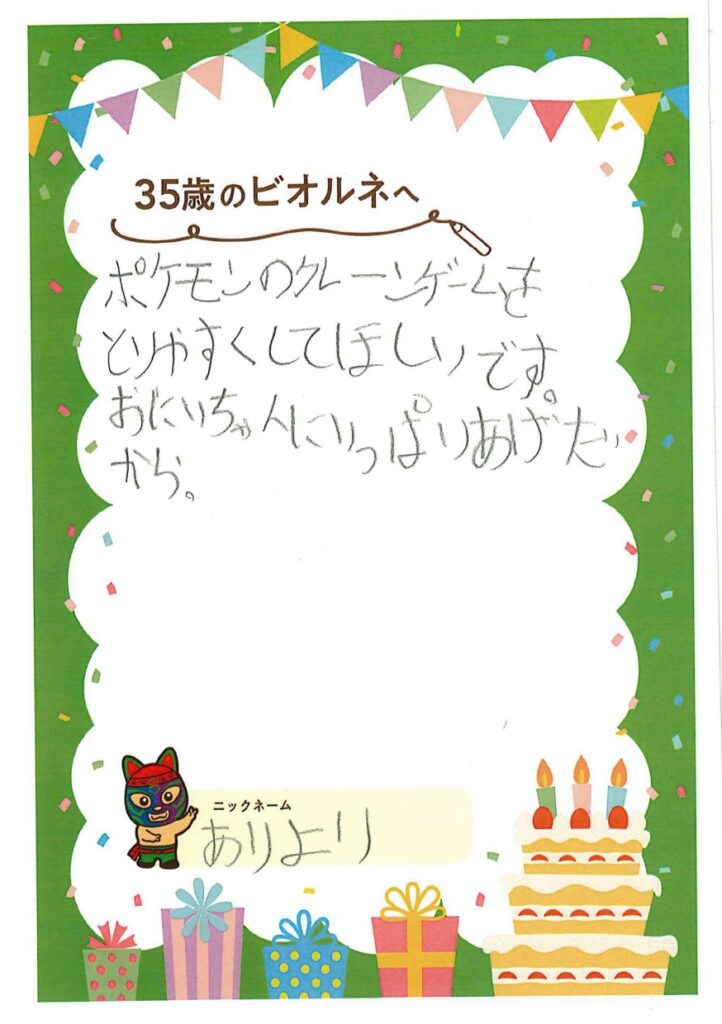 35歳のビオルネへ
ポケモンのクレーンゲームを
とりやすくしてほしいです。
おにいちゃんにいっぱいあげたい
から。
ニックネーム
ありより